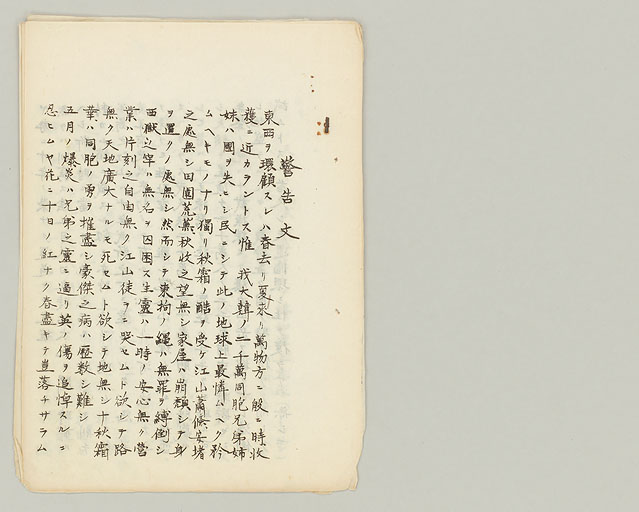 警告文
東西ヲ環顧スレハ春去リ夏来リ萬物方ニ殷ニ時收
穫ニ近カラントス惟 我大韓ノ二千萬同胞兄弟姉
妹ハ國ヲ失ヒシ民ニシテ此ノ地球上最憐ハヘク矜
ムヘキモノナリ獨リ秋霜ノ酷ヲ受ケ江山蕭條安堵
之處無シ田園荒蕪秋收之望無シ家屋ハ崩頽シテ身
ヲ置クノ處無シ然而シテ束拘ノ繩ハ無罪ヲ縛倒シ
西獄之宰ハ無名ヲ囚困ス生靈ハ一時ノ安心無ク營
業ハ片刻之自由無ク江山徒ラニ哭セムト欲シテ路
無ク天地廣大ナルモ死セムト欲シテ地無シ十秋霜
葉ハ同胞ノ勇ヲ摧盡シ豪傑之病ハ歴数シ難シ
五月ノ爆炎ハ兄弟之靈ニ逼リ英ノ傷ヲ追悼スルニ
忍ヒムヤ花ニ十日ノ紅ナク春盡キテ豈落チサラム